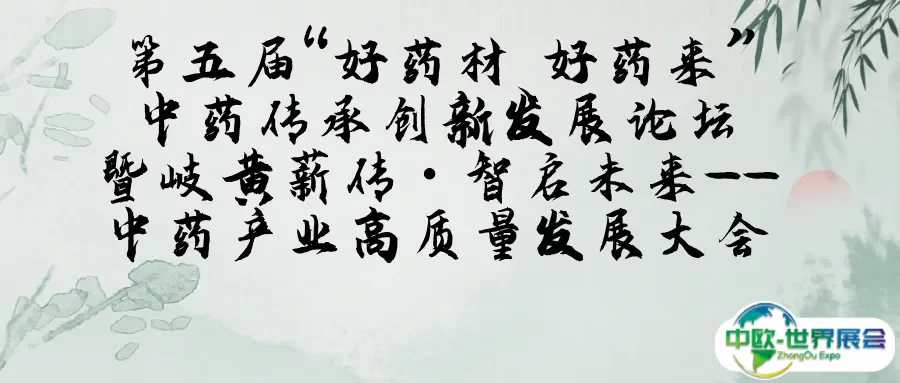 第五届“好药材 好药来”
中药传承创新发展论坛
暨岐黄薪传·智启未来——
中药产业高质量发展大会
中欧-世界展会
ZhongOu Expo